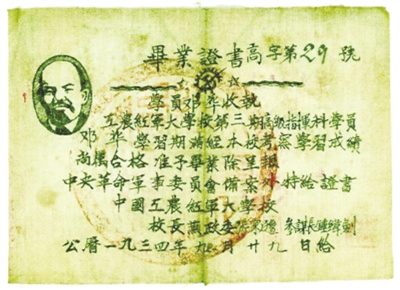 畢業證書高字第29號
學員鄧華收執
工農紅軍大學校第三期高級指揮科學員
鄧華學習期滿經本校考察學習成績
尚屬合格准予畢業除呈報
中央革命軍事委員會備案外特給證書
中國工農紅軍大學校
校長兼政委 參謀長鍾偉劍
公曆一九三四年九月廿九日給